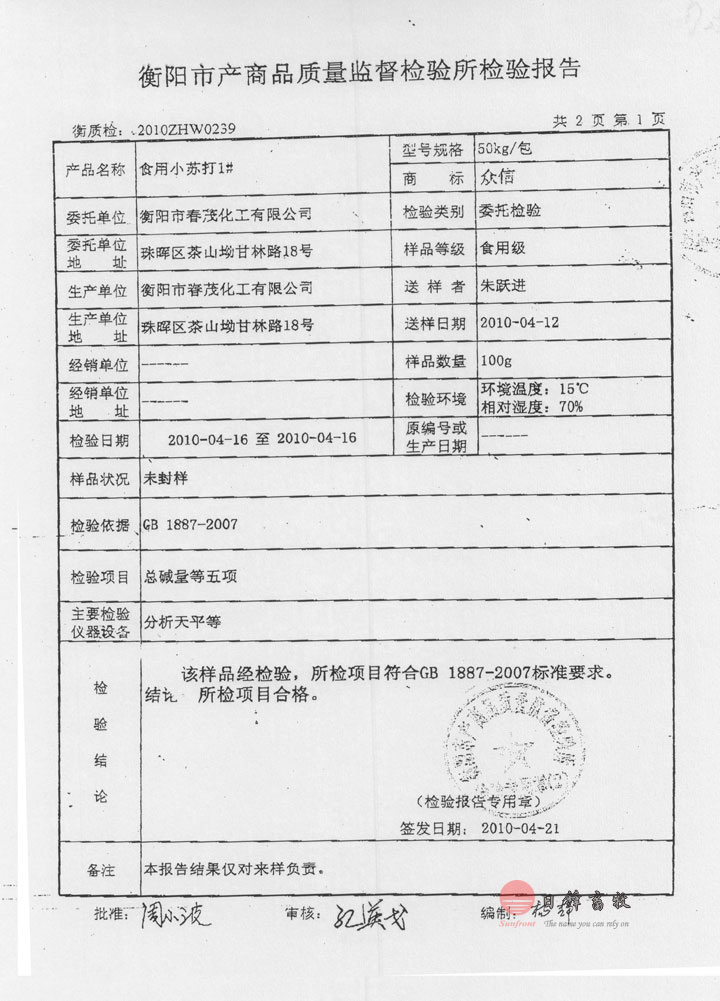 衡阳市产商品质量监督检验所检验报告
衡质检: 2010ZHW0239 共 2 页 第 1 页
产品名称 食用小苏打1# 型号规格 50kg/包
商标 众信
委托单位 衡阳市春茂化工有限公司 检验类别 委托检验
委托单位地址 珠晖区茶山坳甘林路18号 样品等级 食用级
生产单位 衡阳市春茂化工有限公司 送样者 朱跃进
生产单位地址 珠晖区茶山坳甘林路18号 送样日期 2010-04-12
经销单位 ------ 样品数量 100g
经销单位地址 ------ 检验环境 环境温度: 15℃
相对湿度: 70%
检验日期 2010-04-16 至 2010-04-16 原编号或生产日期 ------
样品状况 未封样
检验依据 GB 1887-2007
检验项目 总碱量等五项
主要检验仪器设备 分析天平等
检验结论 该样品经检验，所检项目符合GB 1887-2007标准要求。
结论 所检项目合格。
(检验报告专用章)
签发日期: 2010-04-21
备注 本报告结果仅对来样负责。
批准: 周小波 审核: 编制:
Sunfront The name you can rely on